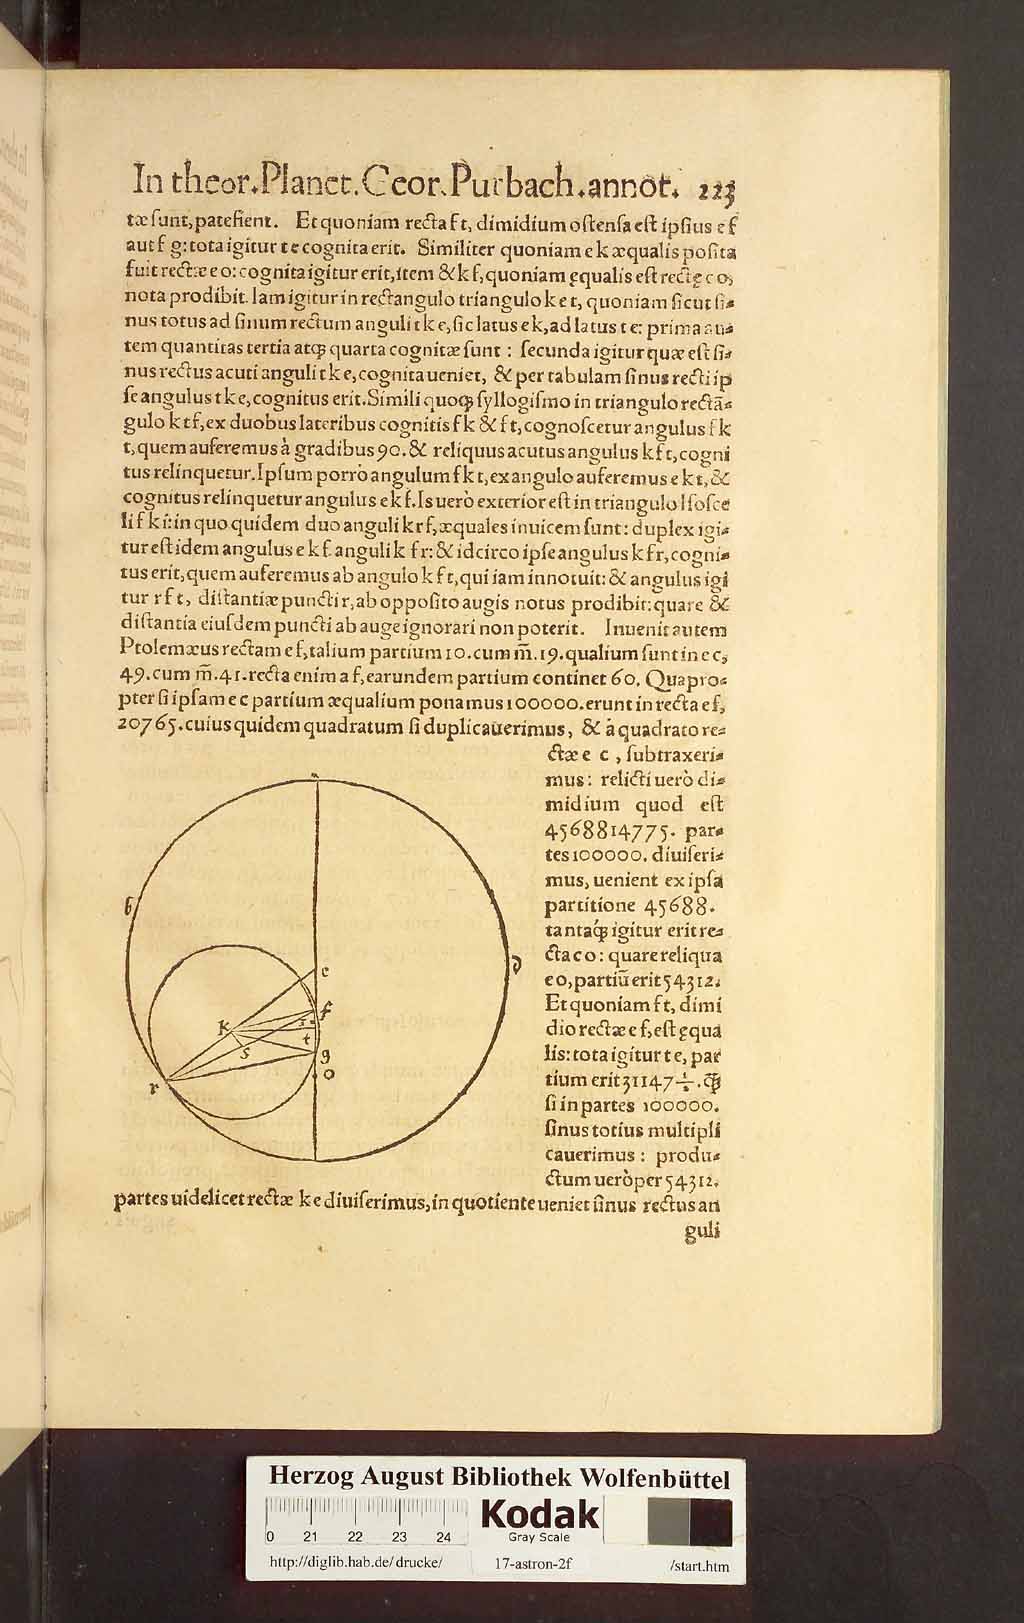 In theor. Planet. Geor. Purbach. annot. 223
tæ sunt, patefient. Et quoniam recta f t, dimidium ostensa est ipsius e f
aut f g: tota igitur t e cognita erit. Similiter quoniam e k æqualis posita
fuit rectæ e o: cognita igitur erit, item & k f, quoniam ęqualis est rectę c o,
nota prodibit. Iam igitur in rectangulo triangulo k e t, quoniam sicut si-
nus totus ad sinum rectum anguli t k e, sic latus e k, ad latus t e: prima au-
tem quantitas tertia atq; quarta cognitæ sunt : secunda igitur quæ est si-
nus rectus acuti anguli t k e, cognita ueniet, & per tabulam sinus recti ip
se angulus t k e, cognitus erit. Simili quoq; syllogismo in triangulo rectã-
gulo k t f, ex duobus lateribus cognitis f k & f t, cognoscetur angulus f k
t, quem auferemus à gradibus 90. & reliquus acutus angulus k f t, cogni
tus relinquetur. Ipsum porrò angulum f k t, ex angulo auferemus e k t, &
cognitus relinquetur angulus e k f. Is uerò exterior est in triangulo Isosce
li f k i: in quo quidem duo anguli k r f, æquales inuicem sunt: duplex igi-
tur est idem angulus e k f. anguli k f r: & idcirco ipse angulus k f r, cogni-
tus erit, quem auferemus ab angulo k f t, qui iam innotuit: & angulus igi
tur r f t, distantiæ puncti r, ab opposito augis notus prodibit: quare &
distantia eiusdem puncti ab auge ignorari non poterit. Inuenit autem
Ptolemæus rectam e f, talium partium 10. cum m̃. 19. qualium sunt in e c,
49. cum m̃. 41. recta enim a f, earundem partium continet 60. Quapro-
pter si ipsam e c partium æqualium ponamus 100000. erunt in recta e f,
20765. cuius quidem quadratum si duplicauerimus, & à quadrato re-
ctæ e c, subtraxeri-
mus: relicti uerò di-
midium quod est
4568814775. par-
tes 100000. diuiseri-
mus, uenient ex ipsa
partitione 45688.
tantaq́; igitur erit re-
cta c o: quare reliqua
e o, partiũ erit 54312.
Et quoniam f t, dimi
dio rectæ e f, est ęqua
lis: tota igitur t e, par
tium erit 31147 ½. q̃
si in partes 100000.
sinus totius multipli
cauerimus: produ-
ctum uerò per 54312.
b
e
d
f
k
t
s
g
o
r
partes uidelicet rectæ k e diuiserimus, in quotiente ueniet sinus rectus an
guli
Herzog August Bibliothek Wolfenbüttel
0 21 22 23 24
Kodak
Gray Scale
http://diglib.hab.de/drucke/ 17-astron-2f /start.htm